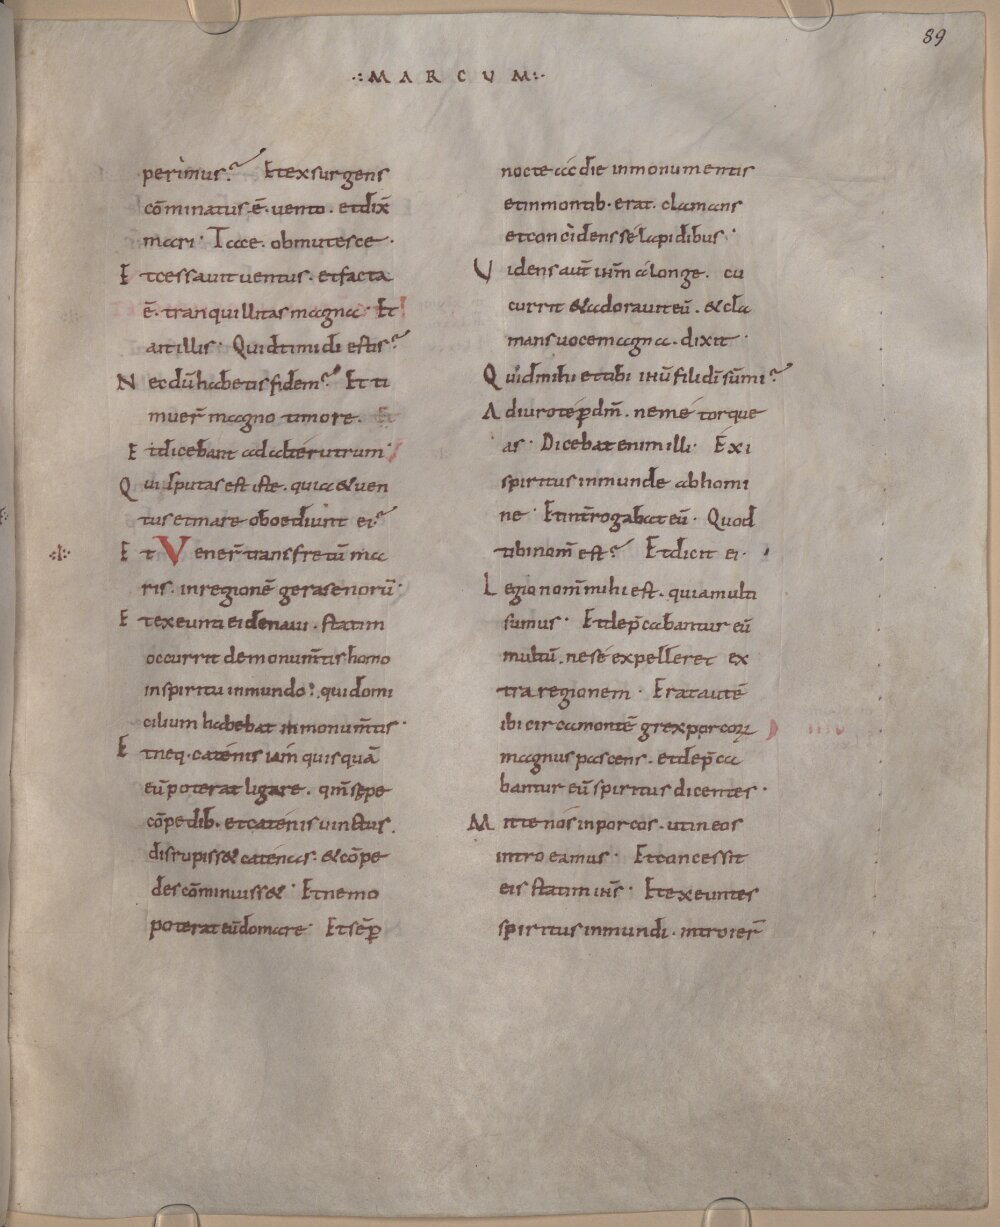 89
.:MARCUM:.
perimus? Et exsurgens
cōminatus ē. vento. et dix̄
mari · Tace. obmutesce.
Et cessavit ventus. et facta
ē. tranquillitas magna · Et
ait illis · Quid timidi estis?
Nec dū habetis fidem? Et ti
muer̄ magno timore. Et
Et dicebant ad alterutrum·
Quis putas est iste. quia & ven
tus et mare oboediunt ei?
Et Vener̄ trans fretū ma
ris. in regionē gerasenorū·
Et exeunti ei de navi. statim
occurrit de monum̄tis homo
in spiritu inmundo·, qui domi
cilium habebat in monum̄tis·
Et neq· catenis iam quisquā
eū poterat ligare. qm̄ sępe
cōpedib. et catenis vinctus.
disrupiss& catenas. & cōpe
des cōminuiss& · Et nemo
poterat eū domare · Et sēp
nocte ac die in monumentis
et in montib. erat. clamans
et concidens se lapidibus·
Videns aut̄ ihm̄ a longe. cu
currit & adoravit eū. & cla
mans voce magna. dixit ·
Quid mihi et tibi ihū fili dī sūmi?
Adiuro te p dm̄. ne me torque
as · Dicebat enim illi · Exi
spiritus inmunde ab homi
ne · Et int̄rogabat eū · Quod
tibi nom̄ est? Et dicit ei ·
Legio nom̄ mihi est. quia multi
sumus · Et dep̄cabantur eū
multū. ne se expelleret ex
tra regionem · Erat autē
ibi circa montē grex porcoꝝ
magnus pascens. et dep̄ca
bantur eū spiritus dicentes·
Mitte nos in porcos. ut in eos
introeamus · Et concessit
eis statim ihs̄ · Et exeuntes
spiritus inmundi. introier̄